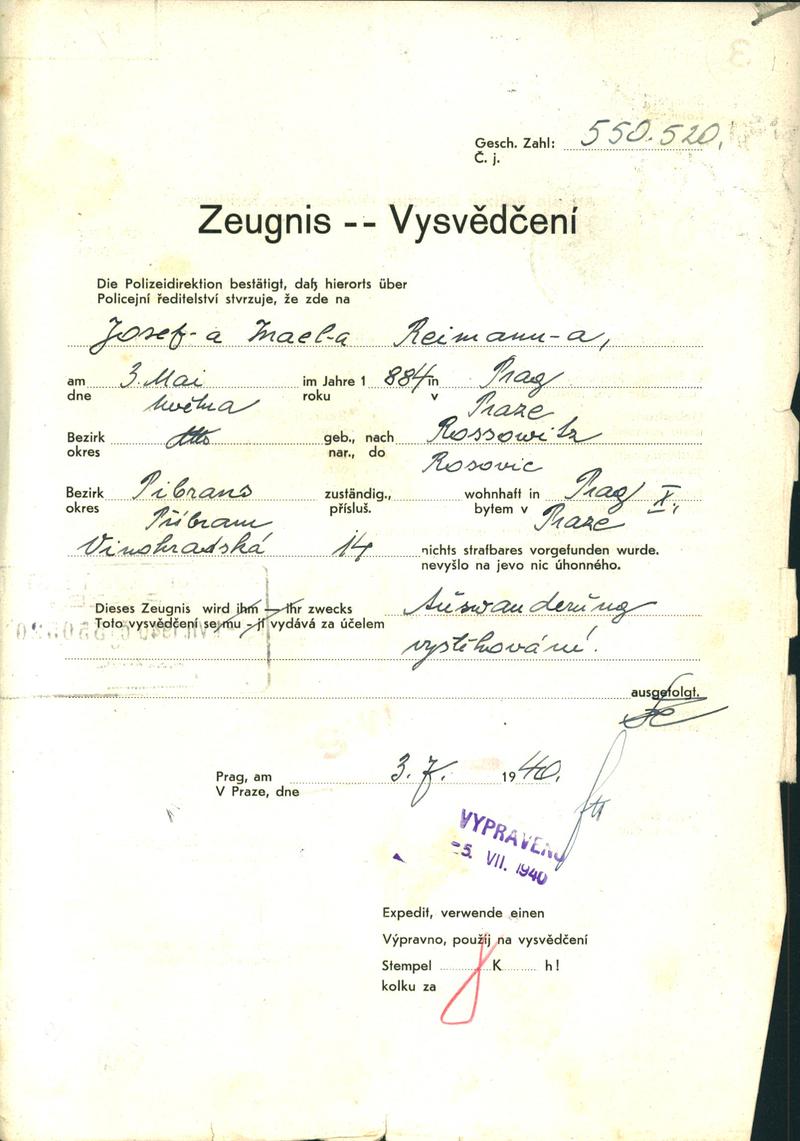 Gesch. Zahl: 550.520,
Č. j.
Zeugnis -- Vysvědčení
Die Polizeidirektion bestätigt, daß hierorts über
Policejní ředitelství stvrzuje, že zde na
Josef-a Israel-a Reimann-a,
am 3. Mai im Jahre 1 884 in Prag
dne května roku v Praze
Bezirk geb., nach Rossowitz
okres nar., do Rosovic
Bezirk Pibrans zuständig., wohnhaft in Prag X,
okres Příbram přísluš. bytem v Praze
Vinohradská 14 nichts strafbares vorgefunden wurde.
nevyšlo na jevo nic úhonného.
Dieses Zeugnis wird ihm — ihr zwecks Auswanderung
Toto vysvědčení se mu - jí vydává za účelem
vystěhování.
ausgefolgt.
Prag, am 3. 7. 1940.
V Praze, dne
VYPRAVENO
-5. VII. 1940
Expedit, verwende einen
Výpravno, použij na vysvědčení
Stempel K h!
kolku za